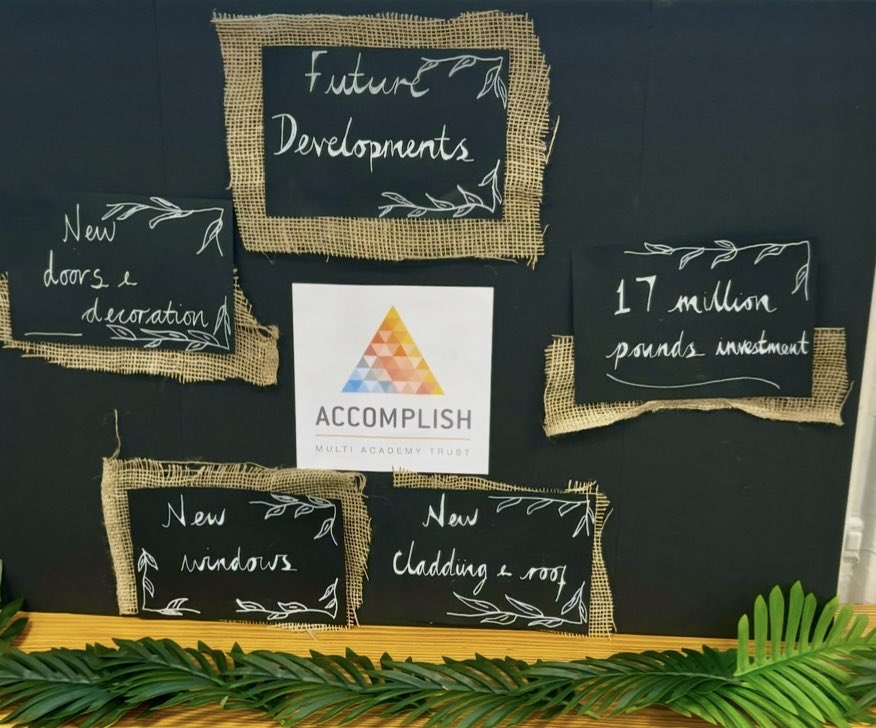 Future
Developments
New
doors &
decoration
17 million
pounds investment
ACCOMPLISH
MULTI ACADEMY TRUST
New
windows
New
Cladding & roof